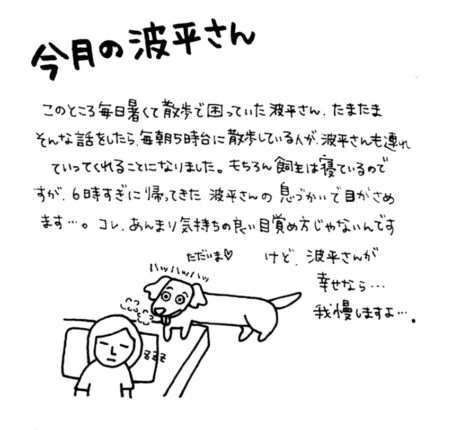 今月の波平さん
このところ毎日暑くて散歩で困っていた波平さん、たまたま
そんな話をしたら、毎朝5時台に散歩している人が、波平さんも連れ
ていってくれることになりました。もちろん飼主は寝ているので
すが、6時すぎに帰ってきた波平さんの息づかいで目がさめ
ます…。コレ、あんまり気持ちの良い目覚め方じゃないんです
けど、波平さんが
幸せなら…
我慢しますよ…。
ただいま♡
ハッハッハッハッ
zzz